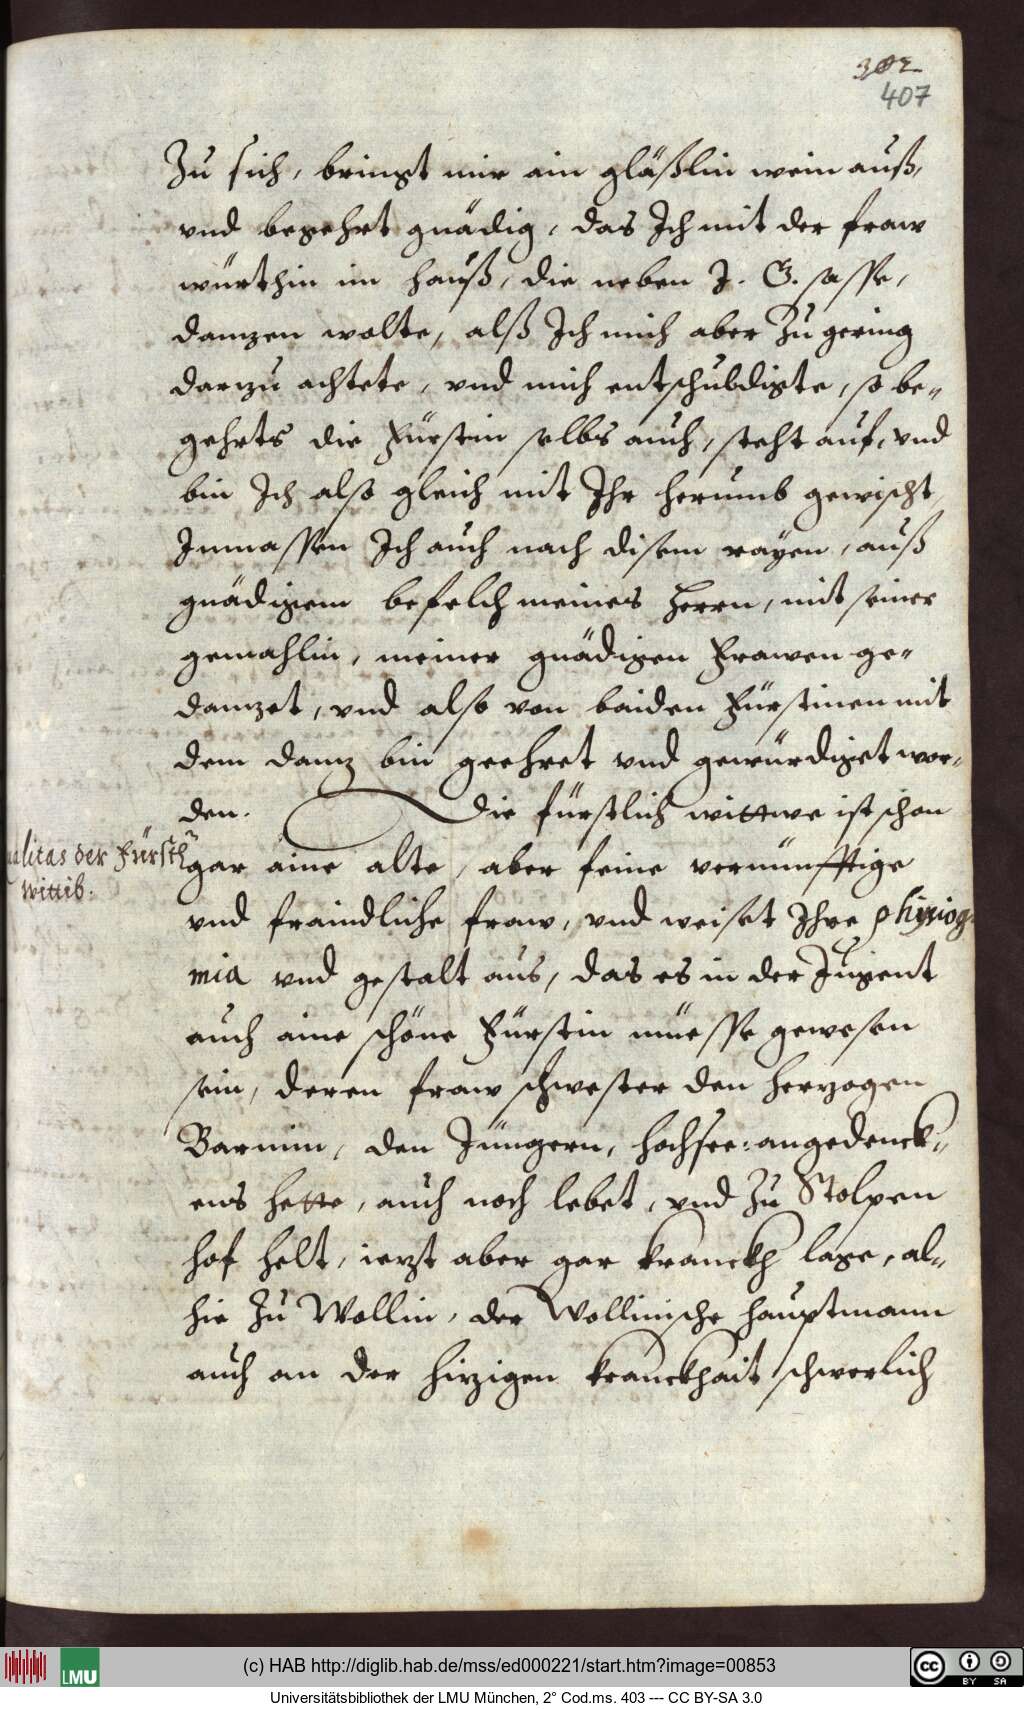 302
407
Zu sich, bringt mir ain gläßlin wein auß,
vnd begehrt gnädig, das Ich mit der fraw
würthin im hauß, die neben J. G. sasse,
danzen wolte, alß Ich mich aber Zu gering
darzu achtete, vnd mich entschuldigte, so be-
gehrts die Fürstin selbs auch, steht auf, vnd
bin Ich also gleich mit Ihr herumb gewischt,
Inmassen Ich auch nach disem rayen, auß
gnädigem befelch meines Herrn, mit seiner
gemahlin, meiner gnädigen Frawen ge-
danzet, vnd also von baiden Fürstinen mit
dem danz bin geehret vnd gewürdiget wor-
den. Die fürstlich wittwe ist schon
gar aine alte, aber feine vernünfftige
vnd fraindliche fraw, vnd weiset Ihre phisiog-
mia vnd gestalt aus, das es in der Jugent
auch aine schöne Fürstin müesse gewesen
sein, deren fraw schwester den herzogen
Barnim, den Jüngern, hochsee: angedenck-
ens hette, auch noch lebet, vnd Zu Stolpen
hof helt, iezt aber gar kranckh lage, al-
hie Zu Wollin, der Wollinische hauptmann
auch an der hizigen kranckhait schwerlich
alitas der Fürstl:
Wittib.
(c) HAB http://diglib.hab.de/mss/ed000221/start.htm?image=00853
LMU
CC BY SA
Universitätsbibliothek der LMU München, 2° Cod.ms. 403 --- CC BY-SA 3.0